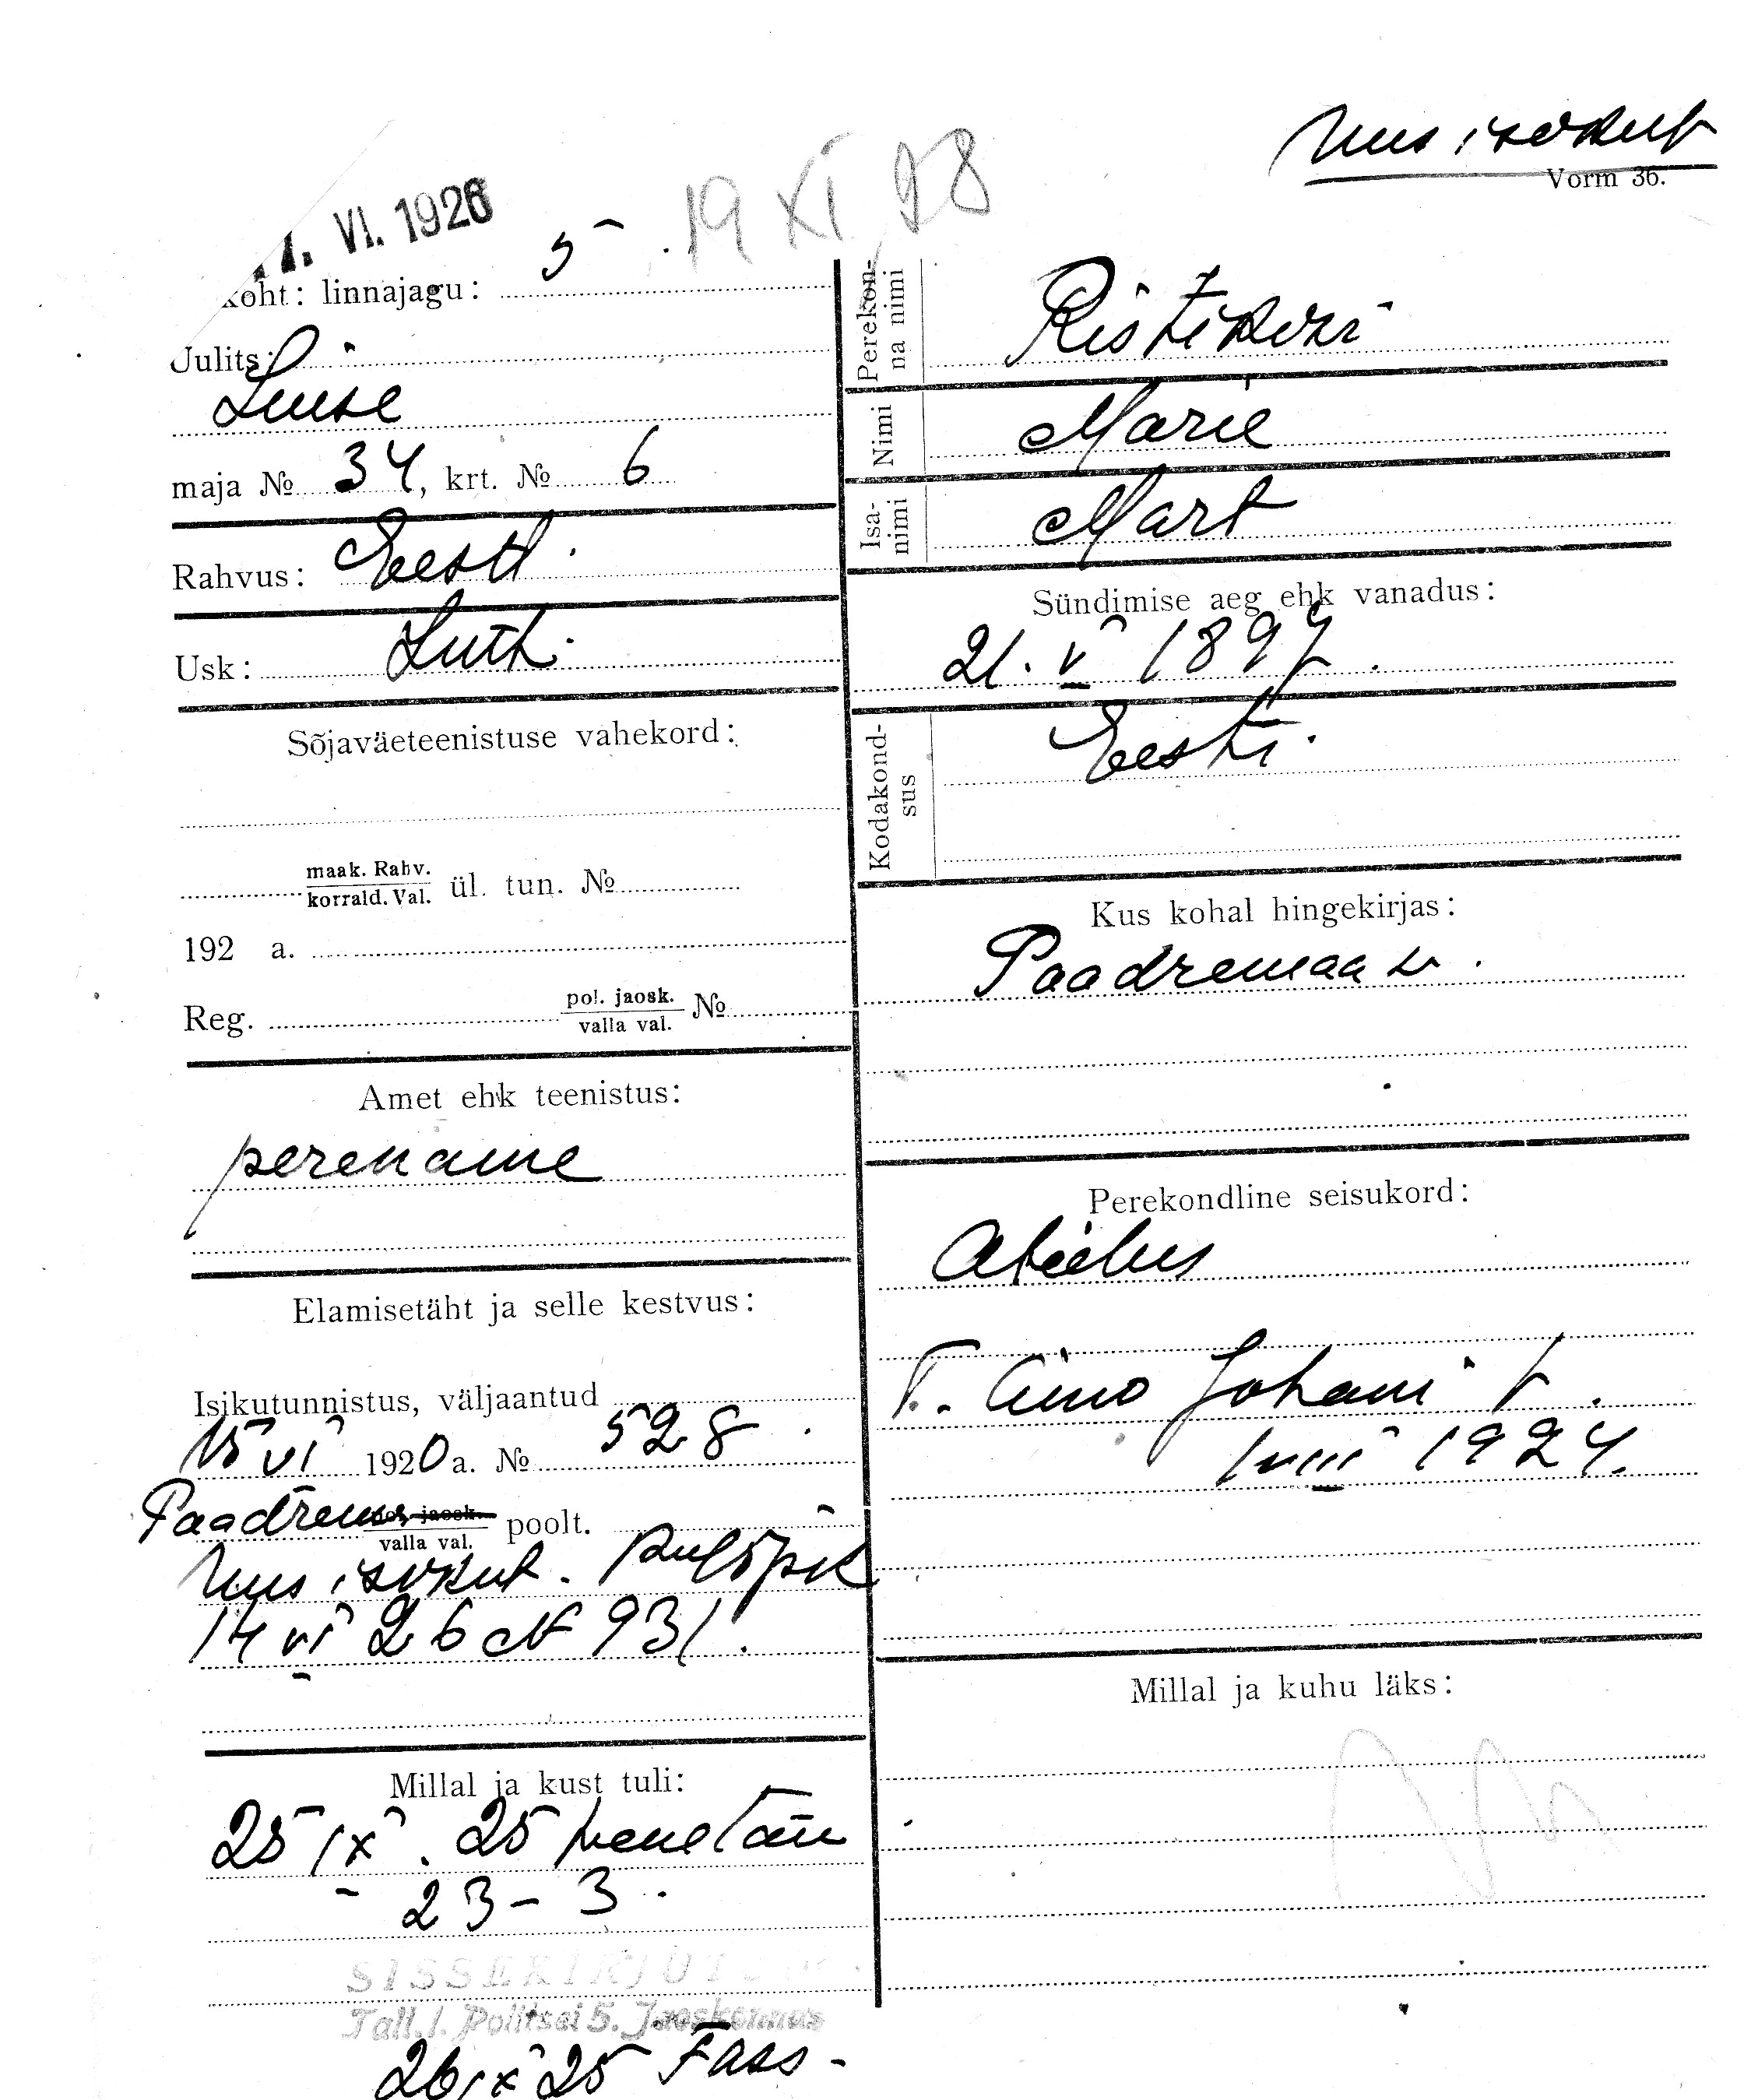 Uus isikut
Vorm 36.
VI. 1926
19 XI 28
koht: linnajagu: 5
Julits:
Luise
maja № 34, krt. № 6
Rahvus: Eesti.
Usk: Luth.
Sõjaväeteenistuse vahekord:
maak. Rahv.
korrald. Val. ül. tun. №
192 a.
Reg. pol. jaosk.
valla val. №
Amet ehk teenistus:
perenaine
Elamisetäht ja selle kestvus:
Isikutunnistus, väljaantud
15 VI 1920 a. № 528.
Paadrema pol. jaosk.
valla val. poolt.
Uus isikut.
14 VI 26 № 931.
Millal ja kust tuli:
25 IX. 25
23-3.
SISSEKIRJUT
Tall. l. Politsei 5. Jaoskonnas
26 IX 25
Perekon-
na nimi
Ristikivi
Nimi
Marie
Isa-
nimi
Mart
Sündimise aeg ehk vanadus:
21. V 1897.
Kodakond-
sus
Eesti.
Kus kohal hingekirjas:
Paadremaa v.
Perekondline seisukord:
Abielus
T. Aino Johani t.
1 VIII 1924.
Millal ja kuhu läks: